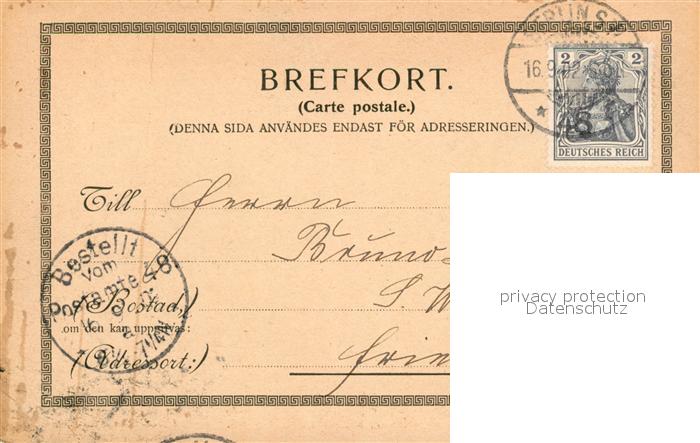 BERLIN S.W.
16.9.02
46
2 2
DEUTSCHES REICH
BREFKORT.
(Carte postale.)
(DENNA SIDA ANVÄNDES ENDAST FÖR ADRESSERINGEN.)
Till Herrn
Bruno
S.W
(Bostad,
om den kan uppgifvas:)
(Adressort:)
Frie
Bestellt
vom
Postamte 48
privacy protection
Datenschutz